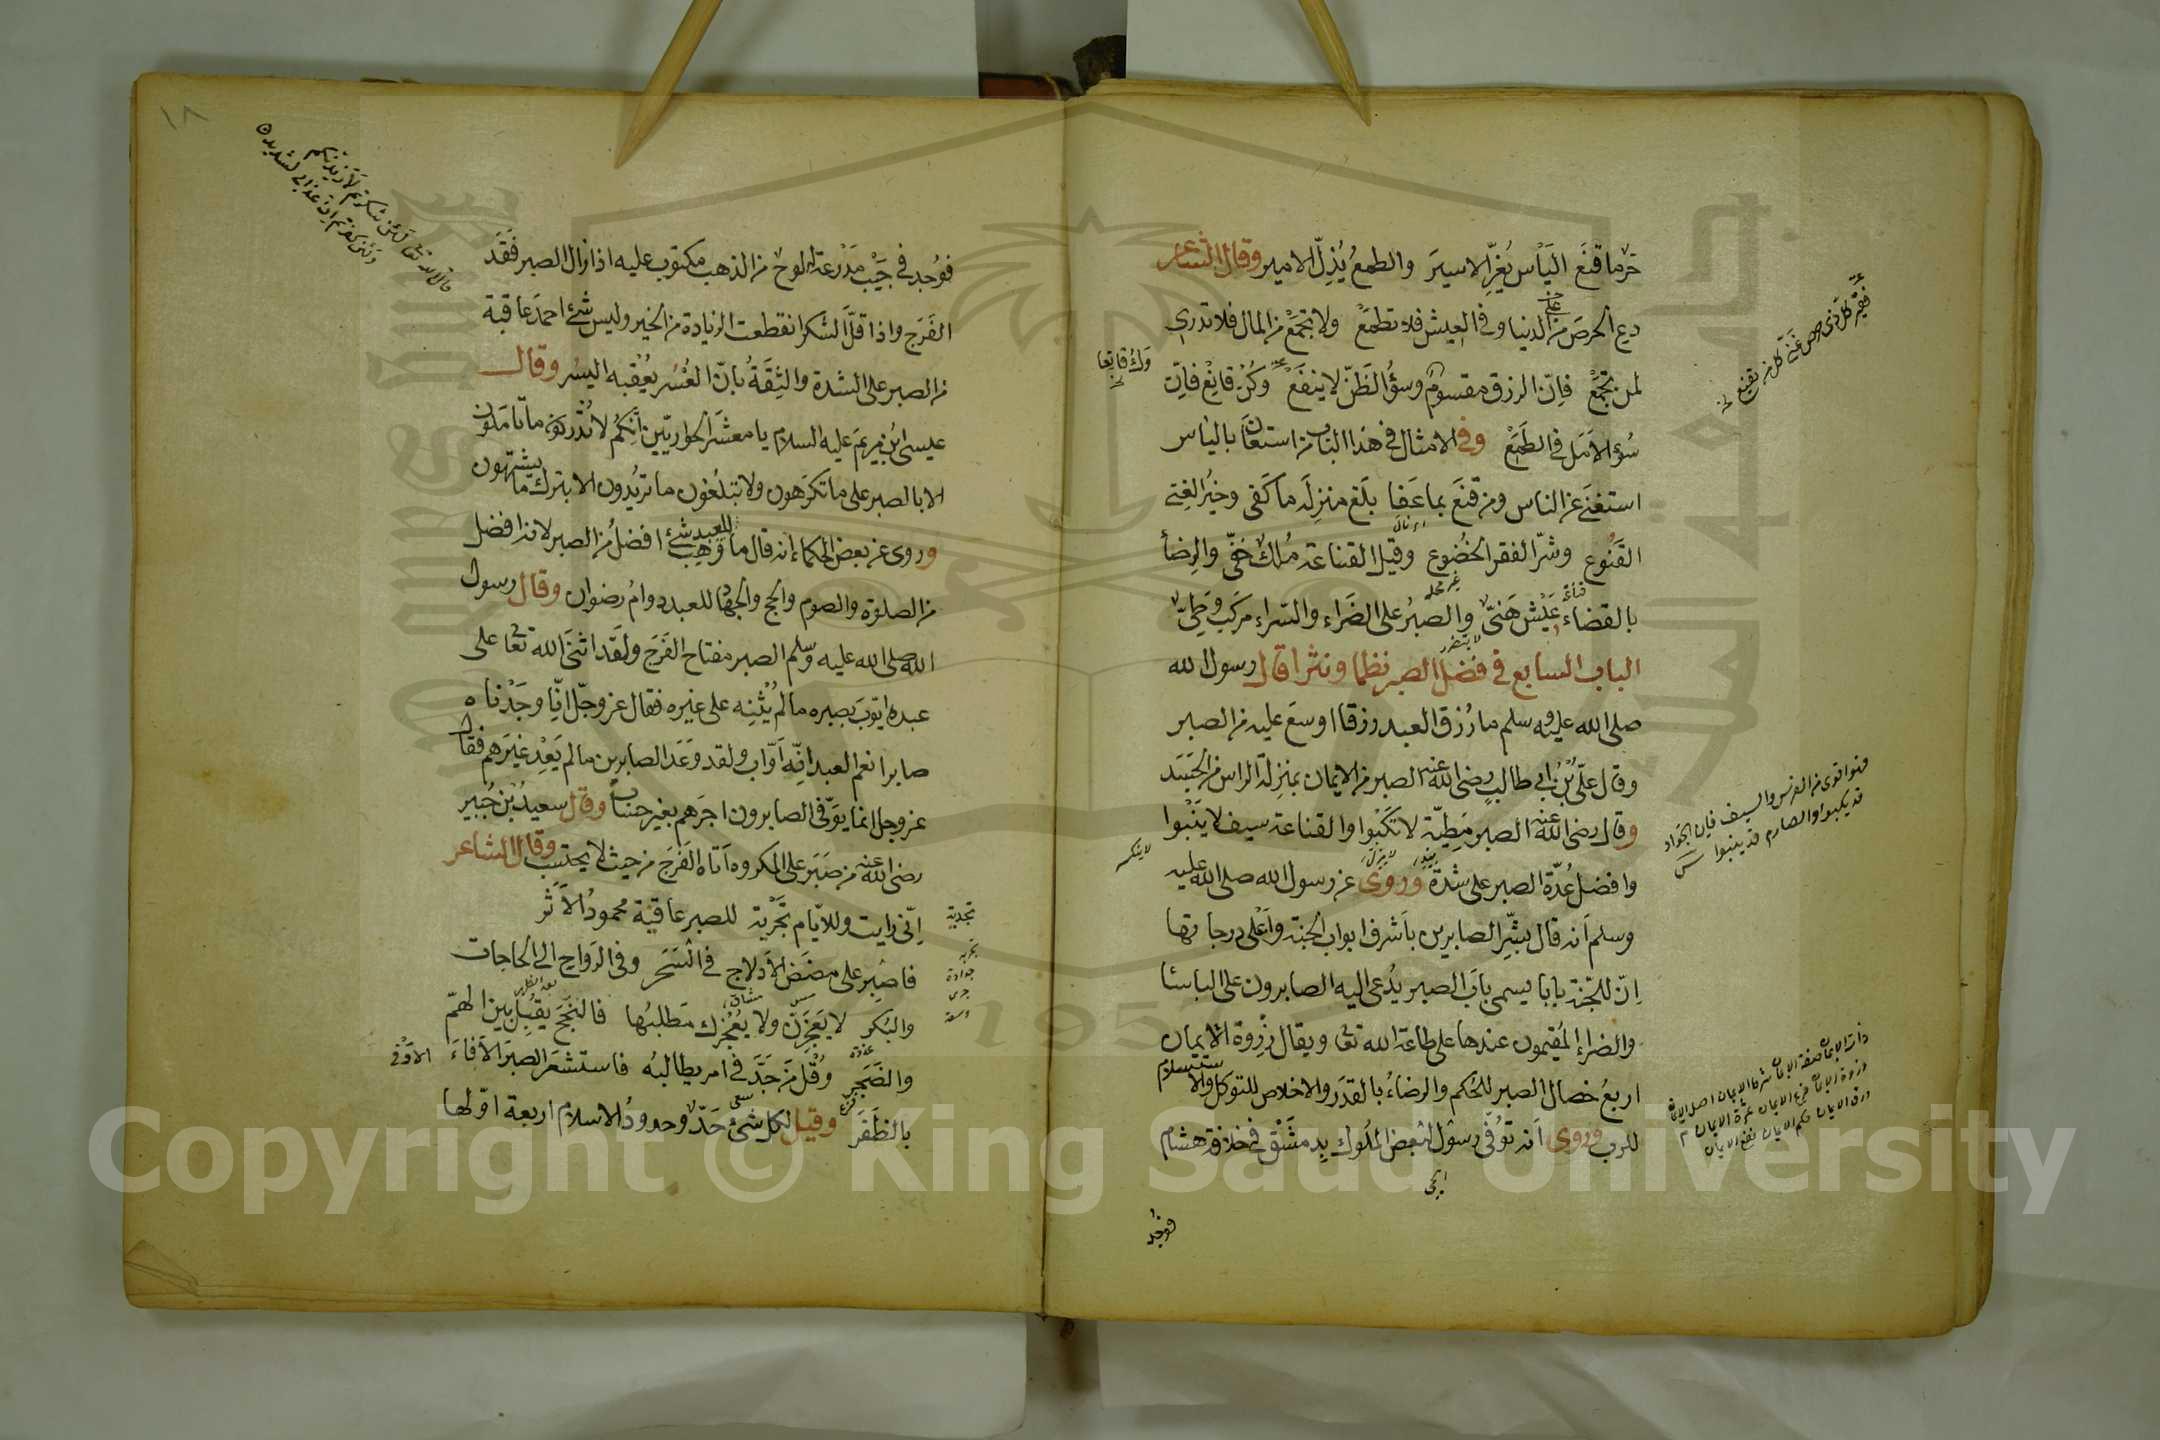 حر ما قنع الياس يُعِزّ الاسير والطمع يُذِلّ الامير وقال الشاعر
دع الحرص على الدنيا وفي العيش فلا تطمع ولا تجمع من المال فلا تدري
لمن تجمع فانّ الرزق مقسوم وسؤ الظنّ لا ينفع وكن قانع فانّ
سؤ الامل في الطمع وفي الامثال في هذا الباب من استعان بالياس
استغنى عن الناس ومن قنع بما عفا بلغ منزلة ما كفى وخير الغنى
القنوع وشرّ الفقر الخضوع وقيل القناعة مُلك خفيّ والرضا
بالقضاء عيش هنيّ والصبر على الضراء والسراء مركب وحيّ
الباب السابع في فضل الصبر نظما ونثرا قال رسول الله
صلى الله عليه وسلم ما رُزق العبد رزقا اوسع عليه من الصبر
وقال عليّ بن ابي طالب رضي الله عنه الصبر من الايمان بمنزلة الراس من الجسد
وقال رضي الله عنه الصبر مطيّة لا تكبوا والقناعة سيف لا ينبوا
وافضل عُدّة الصبر على شدّة وروى عن رسول الله صلى الله عليه
وسلم انه قال بشّر الصابرين باشرف ابواب الجنة واعلى درجاتها
انّ للجنة بابا يسمى باب الصبر يُدعى اليه الصابرون على الباسا
والضراء المقيمون عندها على طاعة الله تعا ويقال ذروة الايمان
اربع خصال الصبر للحكم والرضاء بالقدر والاخلاص للتوكل والاستسلام
للرب وروى انه توُفّي رسول لبعض الملوك بدمشق في خلافة هشام
فوُجد
فقير كل ذي حرص غني كل من يقنع
وك قانعا
فهوا قوى من الفرس والسيف فان الجواد
قد يكبوا والصارم قد ينبوا
١٨
قال الله تعا لئن شكرتم لازيدنكم
ولئن كفرتم ان عذابي لشديد
فوُجد في جيب مدرعته لوح من الذهب مكتوب عليه اذا زال الصبر فقد
الفرج واذا قلّ الشكر انقطعت الزيادة من الخير وليس شئ احمد عاقبة
من الصبر على الشدة والثقة بانّ العسر يُعقبه اليسر وقال
عيسى ابن مريم عليه السلام يا معشر الحواريّين انكم لا تُدركون ما تاملون
الا بالصبر على ما تكرهون ولا تبلغون ما تريدون الا بترك ما يشتهون
وروى عن بعض الحكماء انه قال ما وُهِب للعبد شئ افضل من الصبر لانه افضل
من الصلوة والصوم والحج والجهاد للعبد دوام رضوان وقال رسول
الله صلى الله عليه وسلم الصبر مفتاح الفرج ولقد اثنى الله تعا على
عبده ايّوب بصبره ما لم يُثنه على غيره فقال عز وجلّ انّا وجدناه
صابرا نعم العبد انّه اوّاب ولقد وعد الصابرين ما لم يَعِد غيرهم فقال
عز وجل انما يوَفّى الصابرون اجرهم بغير حساب وقال سعيد بن جُبير
رضي الله عنه من صبر على المكروه اتاه الفرج من حيث لا يحتسب وقال الشاعر
انّي رايت وللايّام تجربة للصبر عاقبة محمود الاثر
فاصبر على مضض الادلاج في السحر وفي الرواح الى الحاجات
والبكر لا يعجزنّ ولا يُعجزك مطلبها فالنجح يقبل بين الهمّ
والضجر وقلّ من جدّ في امر يطالبه فاستشعر الصبر الا فاء
بالظفر وقيل لكل شئ حدّ وحدود الاسلام اربعة اوّلها